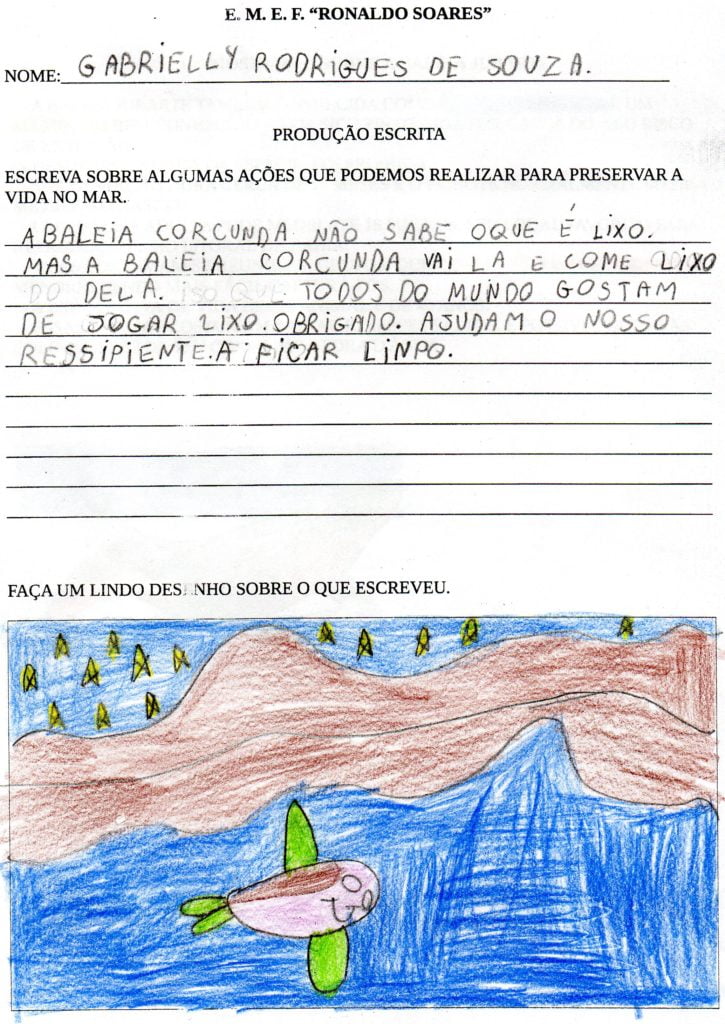 E. M. E. F. “RONALDO SOARES”
NOME: GABRIELLY RODRIGUES DE SOUZA.
PRODUÇÃO ESCRITA
ESCREVA SOBRE ALGUMAS AÇÕES QUE PODEMOS REALIZAR PARA PRESERVAR A
VIDA NO MAR.
A BALEIA CORCUNDA NÃO SABE OQUE É LIXO.
MAS A BALEIA CORCUNDA VAI LA E COME LIXO
DO DELA. ISO QUE TODOS DO MUNDO GOSTAM
DE JOGAR LIXO. OBRIGADO. AJUDAM O NOSSO
RESSIPIENTE. A FICAR LINPO.
FAÇA UM LINDO DESENHO SOBRE O QUE ESCREVEU.